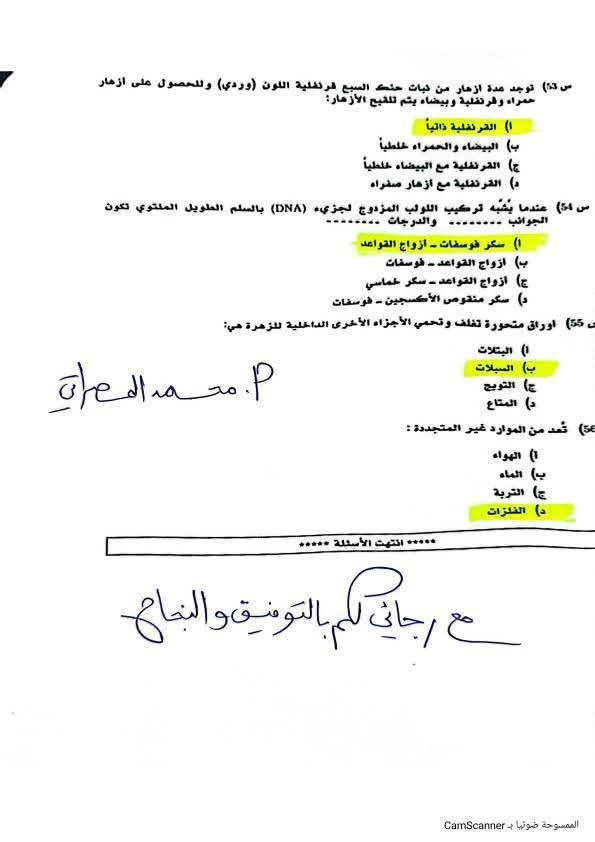 س 53) توجد عدة ازهار من نبات حنك السبع قرنفلية اللون (وردي) وللحصول على ازهار
حمراء وقرنفلية وبيضاء يتم تلقيح الأزهار:
ا) القرنفلية ذاتياً
ب) البيضاء والحمراء خلطياً
ج) القرنفلية مع البيضاء خلطياً
د) القرنفلية مع ازهار صفراء
س 54) عندما يُشبّه تركيب اللولب المزدوج لجزيء (DNA) بالسلم الطويل الملتوي تكون
الجوانب -------- والدرجات --------
ا) سكر فوسفات – ازواج القواعد
ب) ازواج القواعد – فوسفات
ج) ازواج القواعد – سكر خماسي
د) سكر منقوص الأكسجين – فوسفات
س 55) اوراق متحورة تغلف وتحمي الأجزاء الأخرى الداخلية للزهرة هي:
ا) البتلات
ب) السبلات
ج) التويج
د) المتاع
م. محمد المصراتي
56) تُعد من الموارد غير المتجددة :
ا) الهواء
ب) الماء
ج) التربة
د) الفلزات
***** انتهت الأسئلة *****
مع رجائي لكم بالتوفيق والنجاح
الممسوحة ضوئيا بـ CamScanner